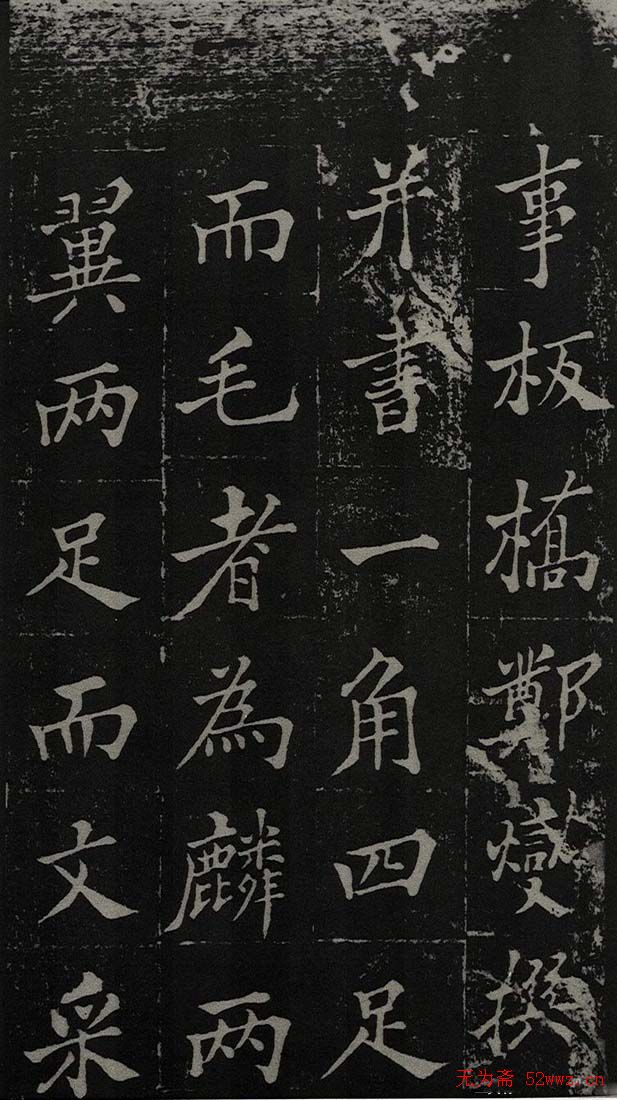 事板橋鄭燮撰
并書一角四足
而毛者為麟两
翼两足而文采
无为斋 52wwz.cn